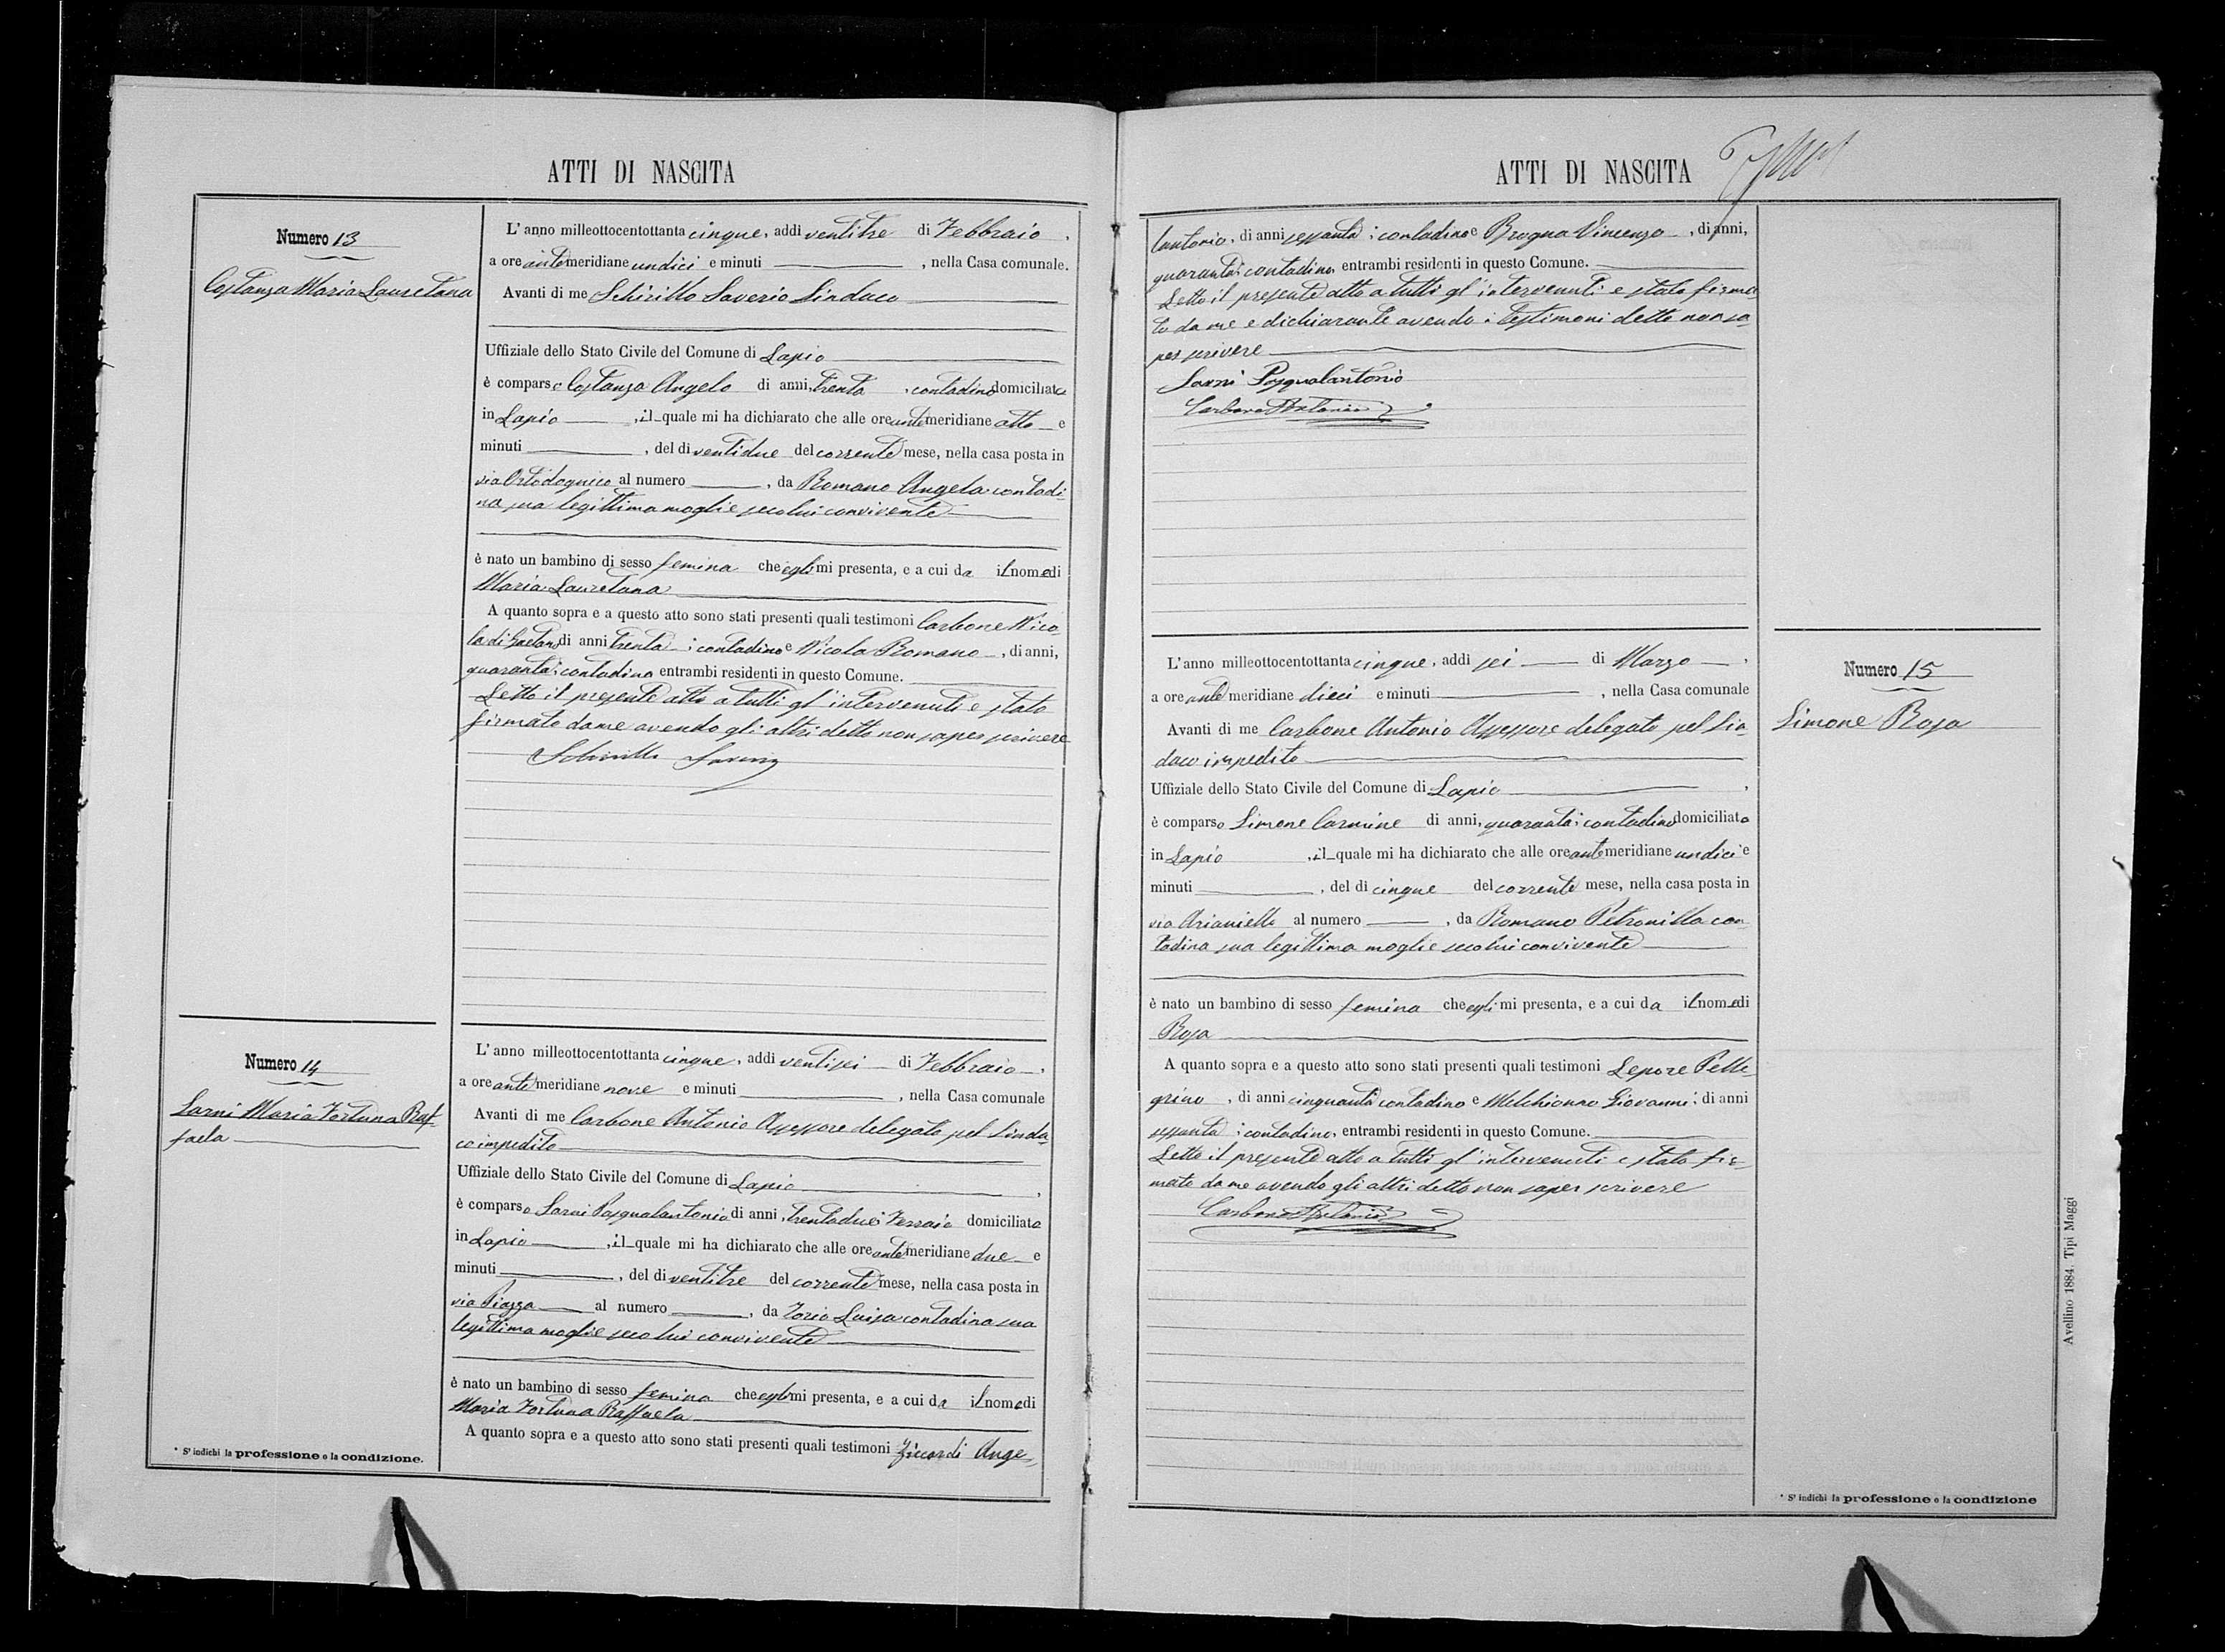 ATTI DI NASCITA
Numero 13
Costanza Maria Lauretana
L'anno milleottocentottanta cinque, addì ventitre di Febbraio,
a ore antemeridiane undici e minuti , nella Casa comunale.
Avanti di me Schirillo Saverio Sindaco
Uffiziale dello Stato Civile del Comune di Lapio
è comparso Costanza Angelo di anni, trenta, contadino domiciliato
in Lapio , il quale mi ha dichiarato che alle ore antemeridiane otto e
minuti , del dì ventidue del corrente mese, nella casa posta in
via al numero , da Romano Angela contadi-
na sua legittima moglie seco lui convivente
è nato un bambino di sesso femina che egli mi presenta, e a cui da il nome di
Maria Lauretana
A quanto sopra e a questo atto sono stati presenti quali testimoni Carbone Nico-
la di Gaetano di anni trenta, contadino e Nicola Romano, di anni,
quaranta, contadino entrambi residenti in questo Comune.
Letto il presente atto a tutti gl'intervenuti è stato
firmato da me avendo gli altri detto non saper scrivere
Schirillo Saverio
Numero 14
Sarni Maria Fortuna Raf-
faela
L'anno milleottocentottanta cinque, addì ventisei di Febbraio,
a ore antemeridiane nove e minuti , nella Casa comunale
Avanti di me Carbone Antonio Assessore delegato pel Sinda-
co impedito
Uffiziale dello Stato Civile del Comune di Lapio ,
è comparso Sarni Pasqualantonio di anni, trentadue, Ferraio domiciliato
in Lapio , il quale mi ha dichiarato che alle ore antemeridiane due e
minuti , del dì ventitre del corrente mese, nella casa posta in
via Piazza al numero , da Iorio Luisa contadina sua
legittima moglie seco lui convivente
è nato un bambino di sesso femina che egli mi presenta, e a cui da il nome di
Maria Fortuna Raffaela
A quanto sopra e a questo atto sono stati presenti quali testimoni Ange-
* S'indichi la professione o la condizione.
ATTI DI NASCITA
lantonio, di anni sessanta, contadino e Brogna Vincenzo, di anni,
quaranta, contadino, entrambi residenti in questo Comune.
Letto il presente atto a tutti gl'intervenuti è stato firma-
to da me e dichiarante avendo i testimoni detto non sa-
per scrivere
Sarni Pasqualantonio
Carbone Antonio
L'anno milleottocentottanta cinque, addì sei di Marzo,
a ore antemeridiane dieci e minuti , nella Casa comunale
Avanti di me Carbone Antonio Assessore delegato pel Sin-
daco impedito
Uffiziale dello Stato Civile del Comune di Lapio ,
è comparso Simone Carmine di anni, quaranta, contadino domiciliato
in Lapio , il quale mi ha dichiarato che alle ore antemeridiane undici e
minuti , del dì cinque del corrente mese, nella casa posta in
via Arianiello al numero , da Romano Petronilla con-
tadina sua legittima moglie seco lui convivente
è nato un bambino di sesso femina che egli mi presenta, e a cui da il nome di
Rosa
A quanto sopra e a questo atto sono stati presenti quali testimoni Lepore Pelle-
grino, di anni cinquanta contadino e Melchionno Giovanni, di anni
sessanta, contadino, entrambi residenti in questo Comune.
Letto il presente atto a tutti gl'intervenuti è stato fir-
mato da me avendo gli altri detto non saper scrivere
Carbone Antonio
Numero 15
Simone Rosa
* S'indichi la professione o la condizione
Avellino 1884. Tipi Maggi